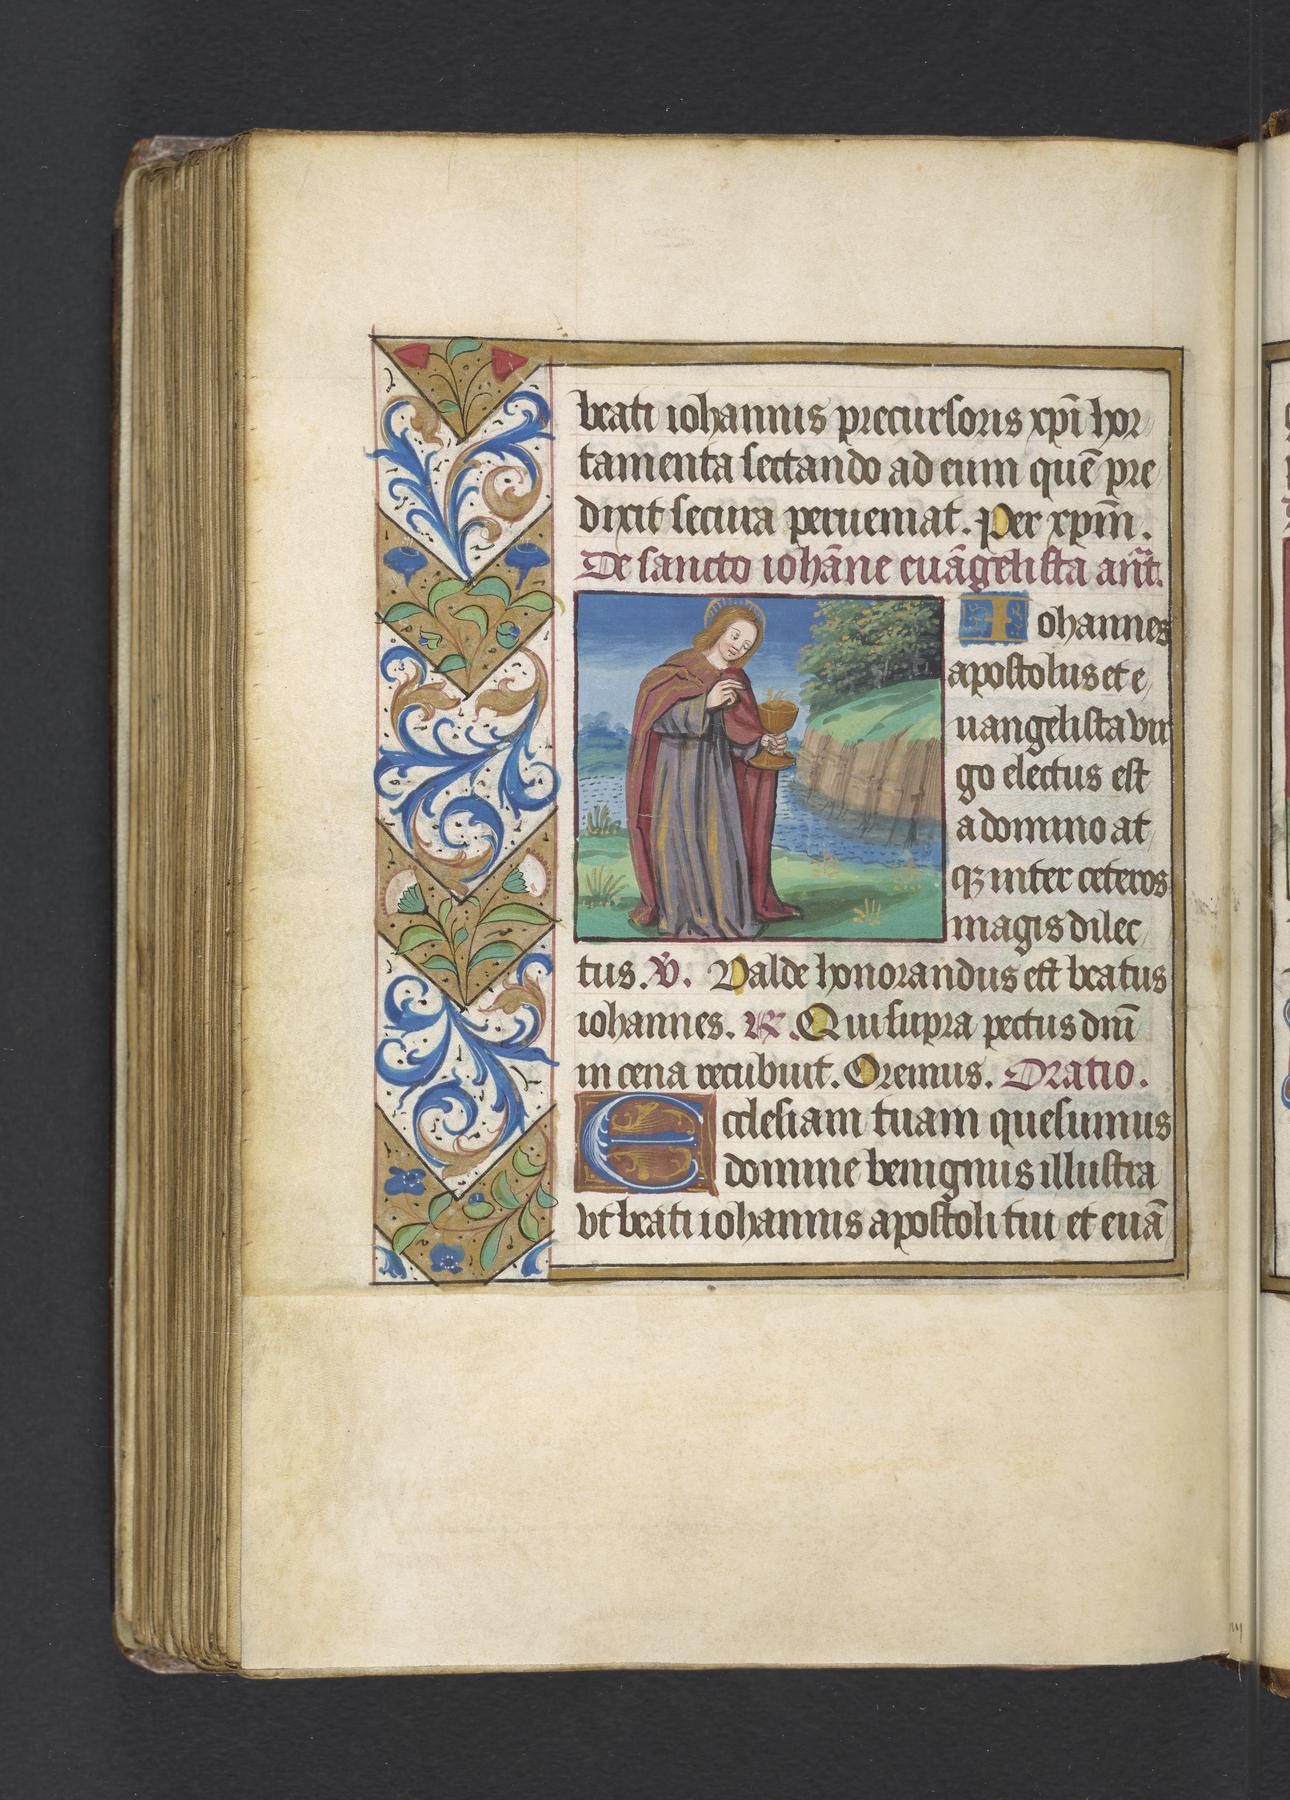 beati iohannis precursoris xp̄i hor
tamenta sectando ad eum quē pre
dixit secura perueniat. Per xp̄m̄.
De sancto iohāne euāgelista an̄t.
Iohannes
apostolus et e
uangelista vir
go electus est
a domino at
qꝫ inter ceteros
magis dilec
tus. ℣. Valde honorandus est beatus
iohannes. ℟. Qui supra pectus dn̄i
in cena recubuit. Oremus. Oratio.
Ecclesiam tuam quesumus
domine benignus illustra
vt beati iohannis apostoli tui et euā